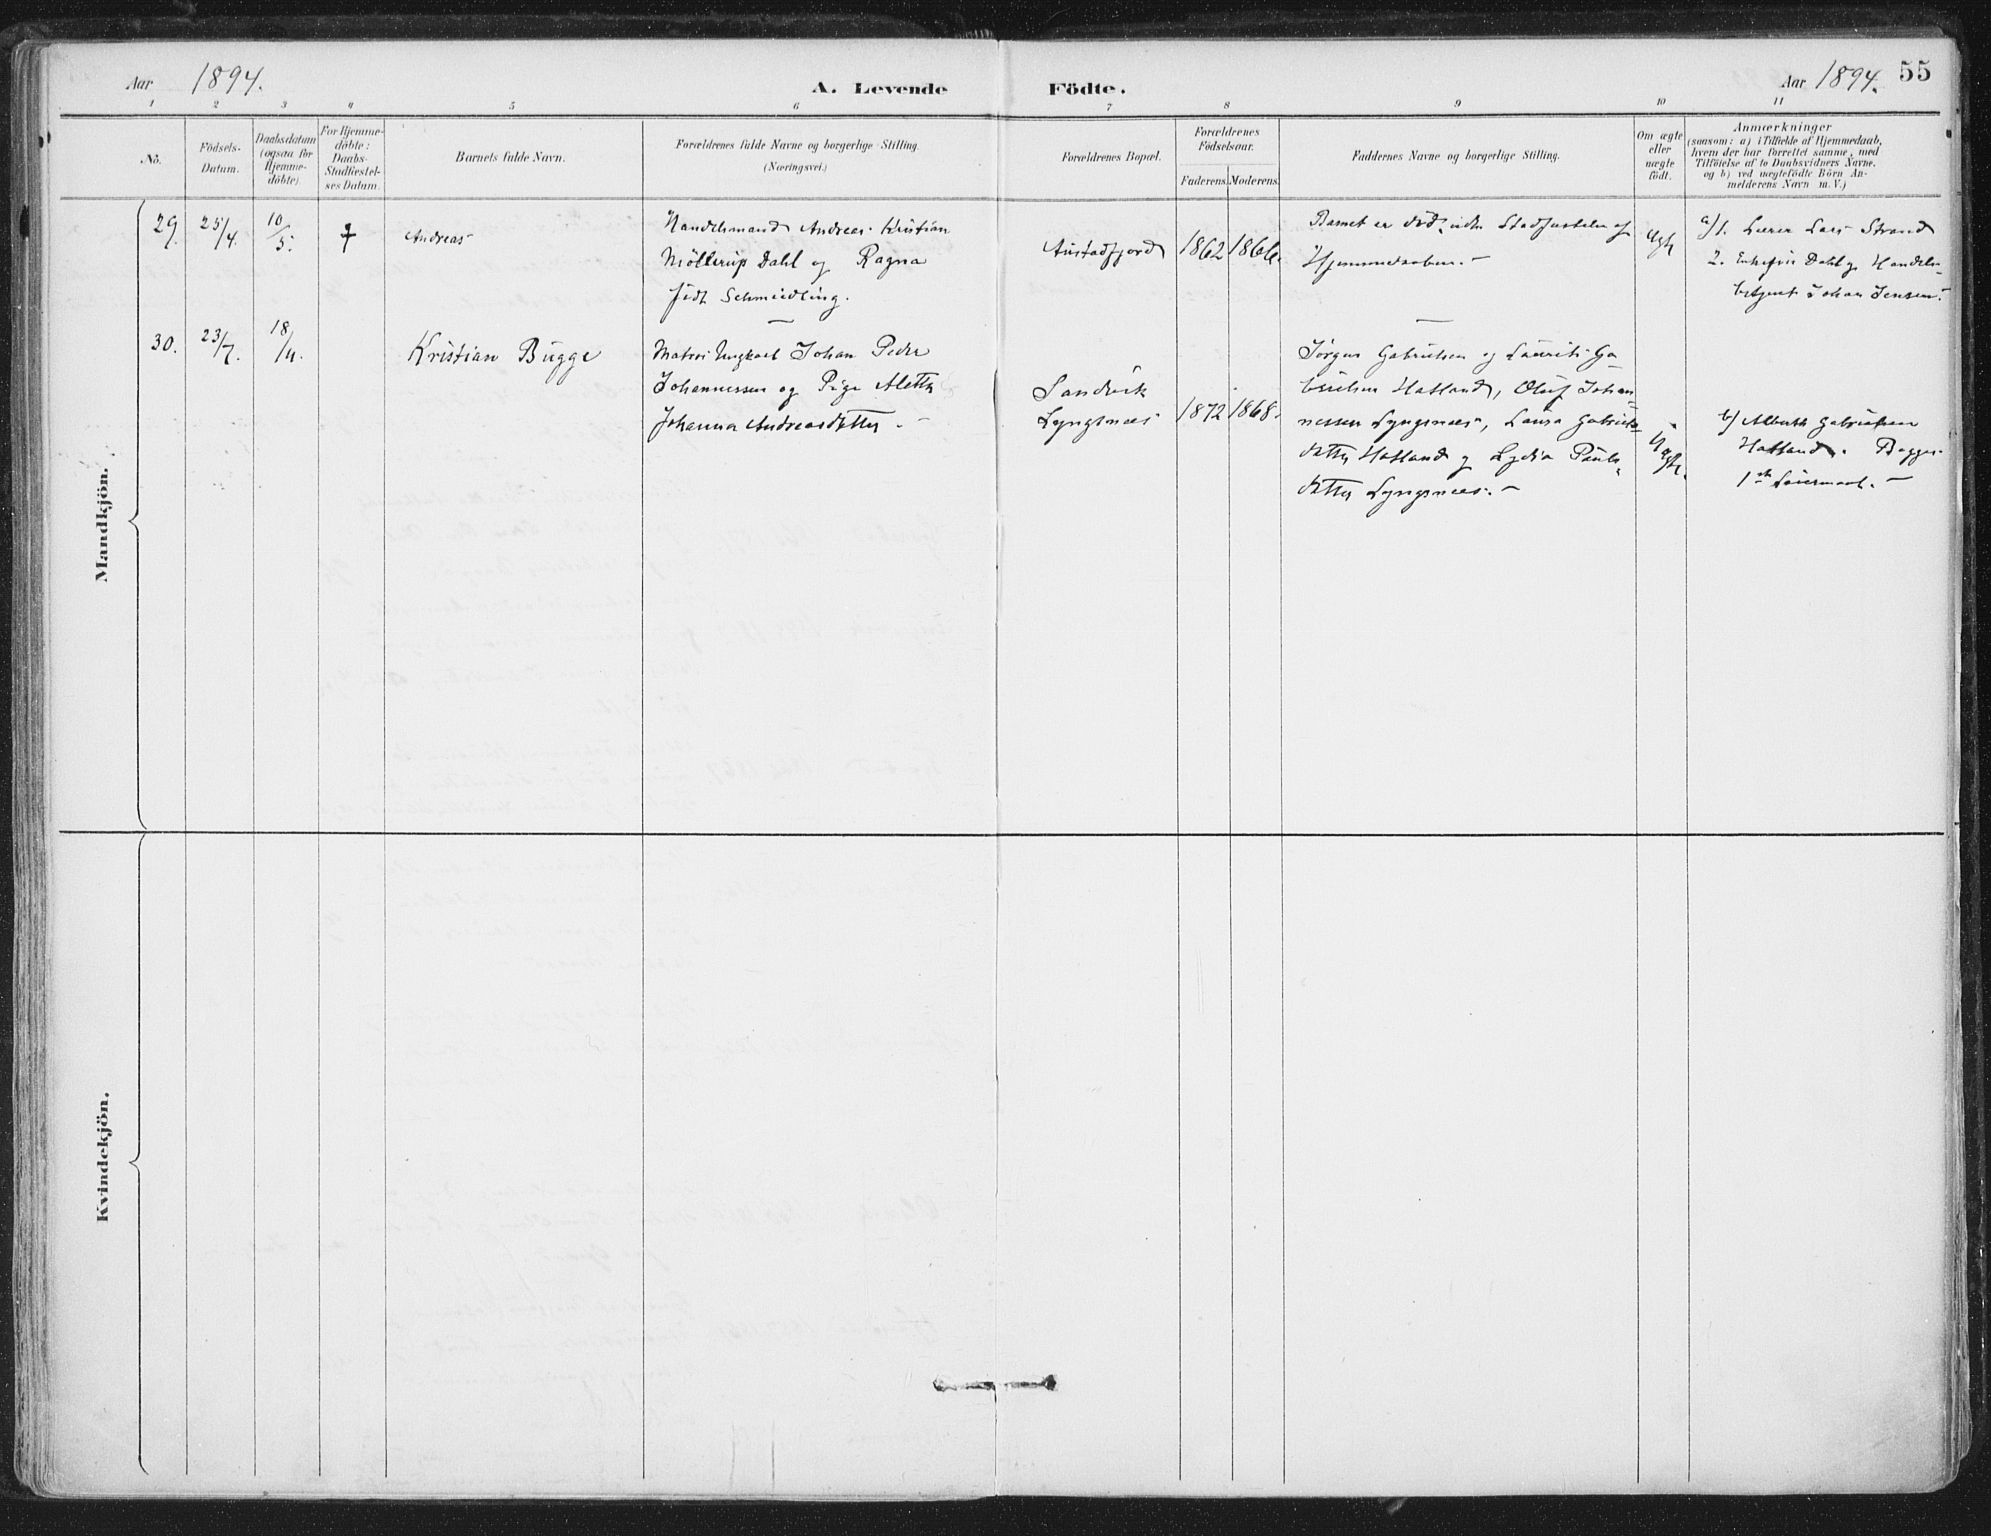 Aar 1894. A. Levende Födte. Aar 1894. 55
1 2 3 4 5 6 7 8 9 10 11
No.
Födsels-
Datum.
Daabsdatum
(ogsaa for
Hjemme-
döbte).
For Hjemme-
döbte:
Daabs-
Stadfæstel-
ses Datum.
Barnets fulde Navn.
Forældrenes fulde Navne og borgerlige Stilling.
(Næringsvei.)
Forældrenes Bopæl.
Forældrenes
Födselsaar.
Faderens. Moderens.
Faddernes Navne og borgerlige Stilling.
Om ægte
eller
uægte
födt.
Anmærkninger
(saasom: a) i Tilfælde af Hjemmedaab,
hvem der har forrettet samme, med
Tilföielse af to Daabsvidners Navne,
og b) ved uægtefödte Börn An-
melderens Navn m. V.)
Mandkjön.
29. 25/4. 10/5. †
Andreas
Handelsmand Andreas Kristian
Möllerup Dahl og Ragna
født Schmidling.
Austadfjord 1862 1866.
Barnet er död uden Stadfæstelse af
Hjemmedaaben. –
Ægte
a) 1. Lærer Lars Strand
2. Enkefru Dahl og Handels-
betjent Johan Jensen.
30. 23/7. 18/11.
Kristian Bugge
Matros Ungkarl Johan Peder
Johannessen og Pige Aletta
Johanna Andreasdatter. –
Sandvik
Lyngsnæs 1872 1868.
Jörgen Gabrielsen og Laurits Ga-
brielsen Hatland, Oluf Johan-
nessen Lyngsnæs, Laura Gabriels-
datter Hatland og Lydia Pauls-
datter Lyngsnæs. –
Uægte.
b) Alberth Gabrielsen
Hatland. Begges
1ste Leiermaal. –
Kvindekjön.